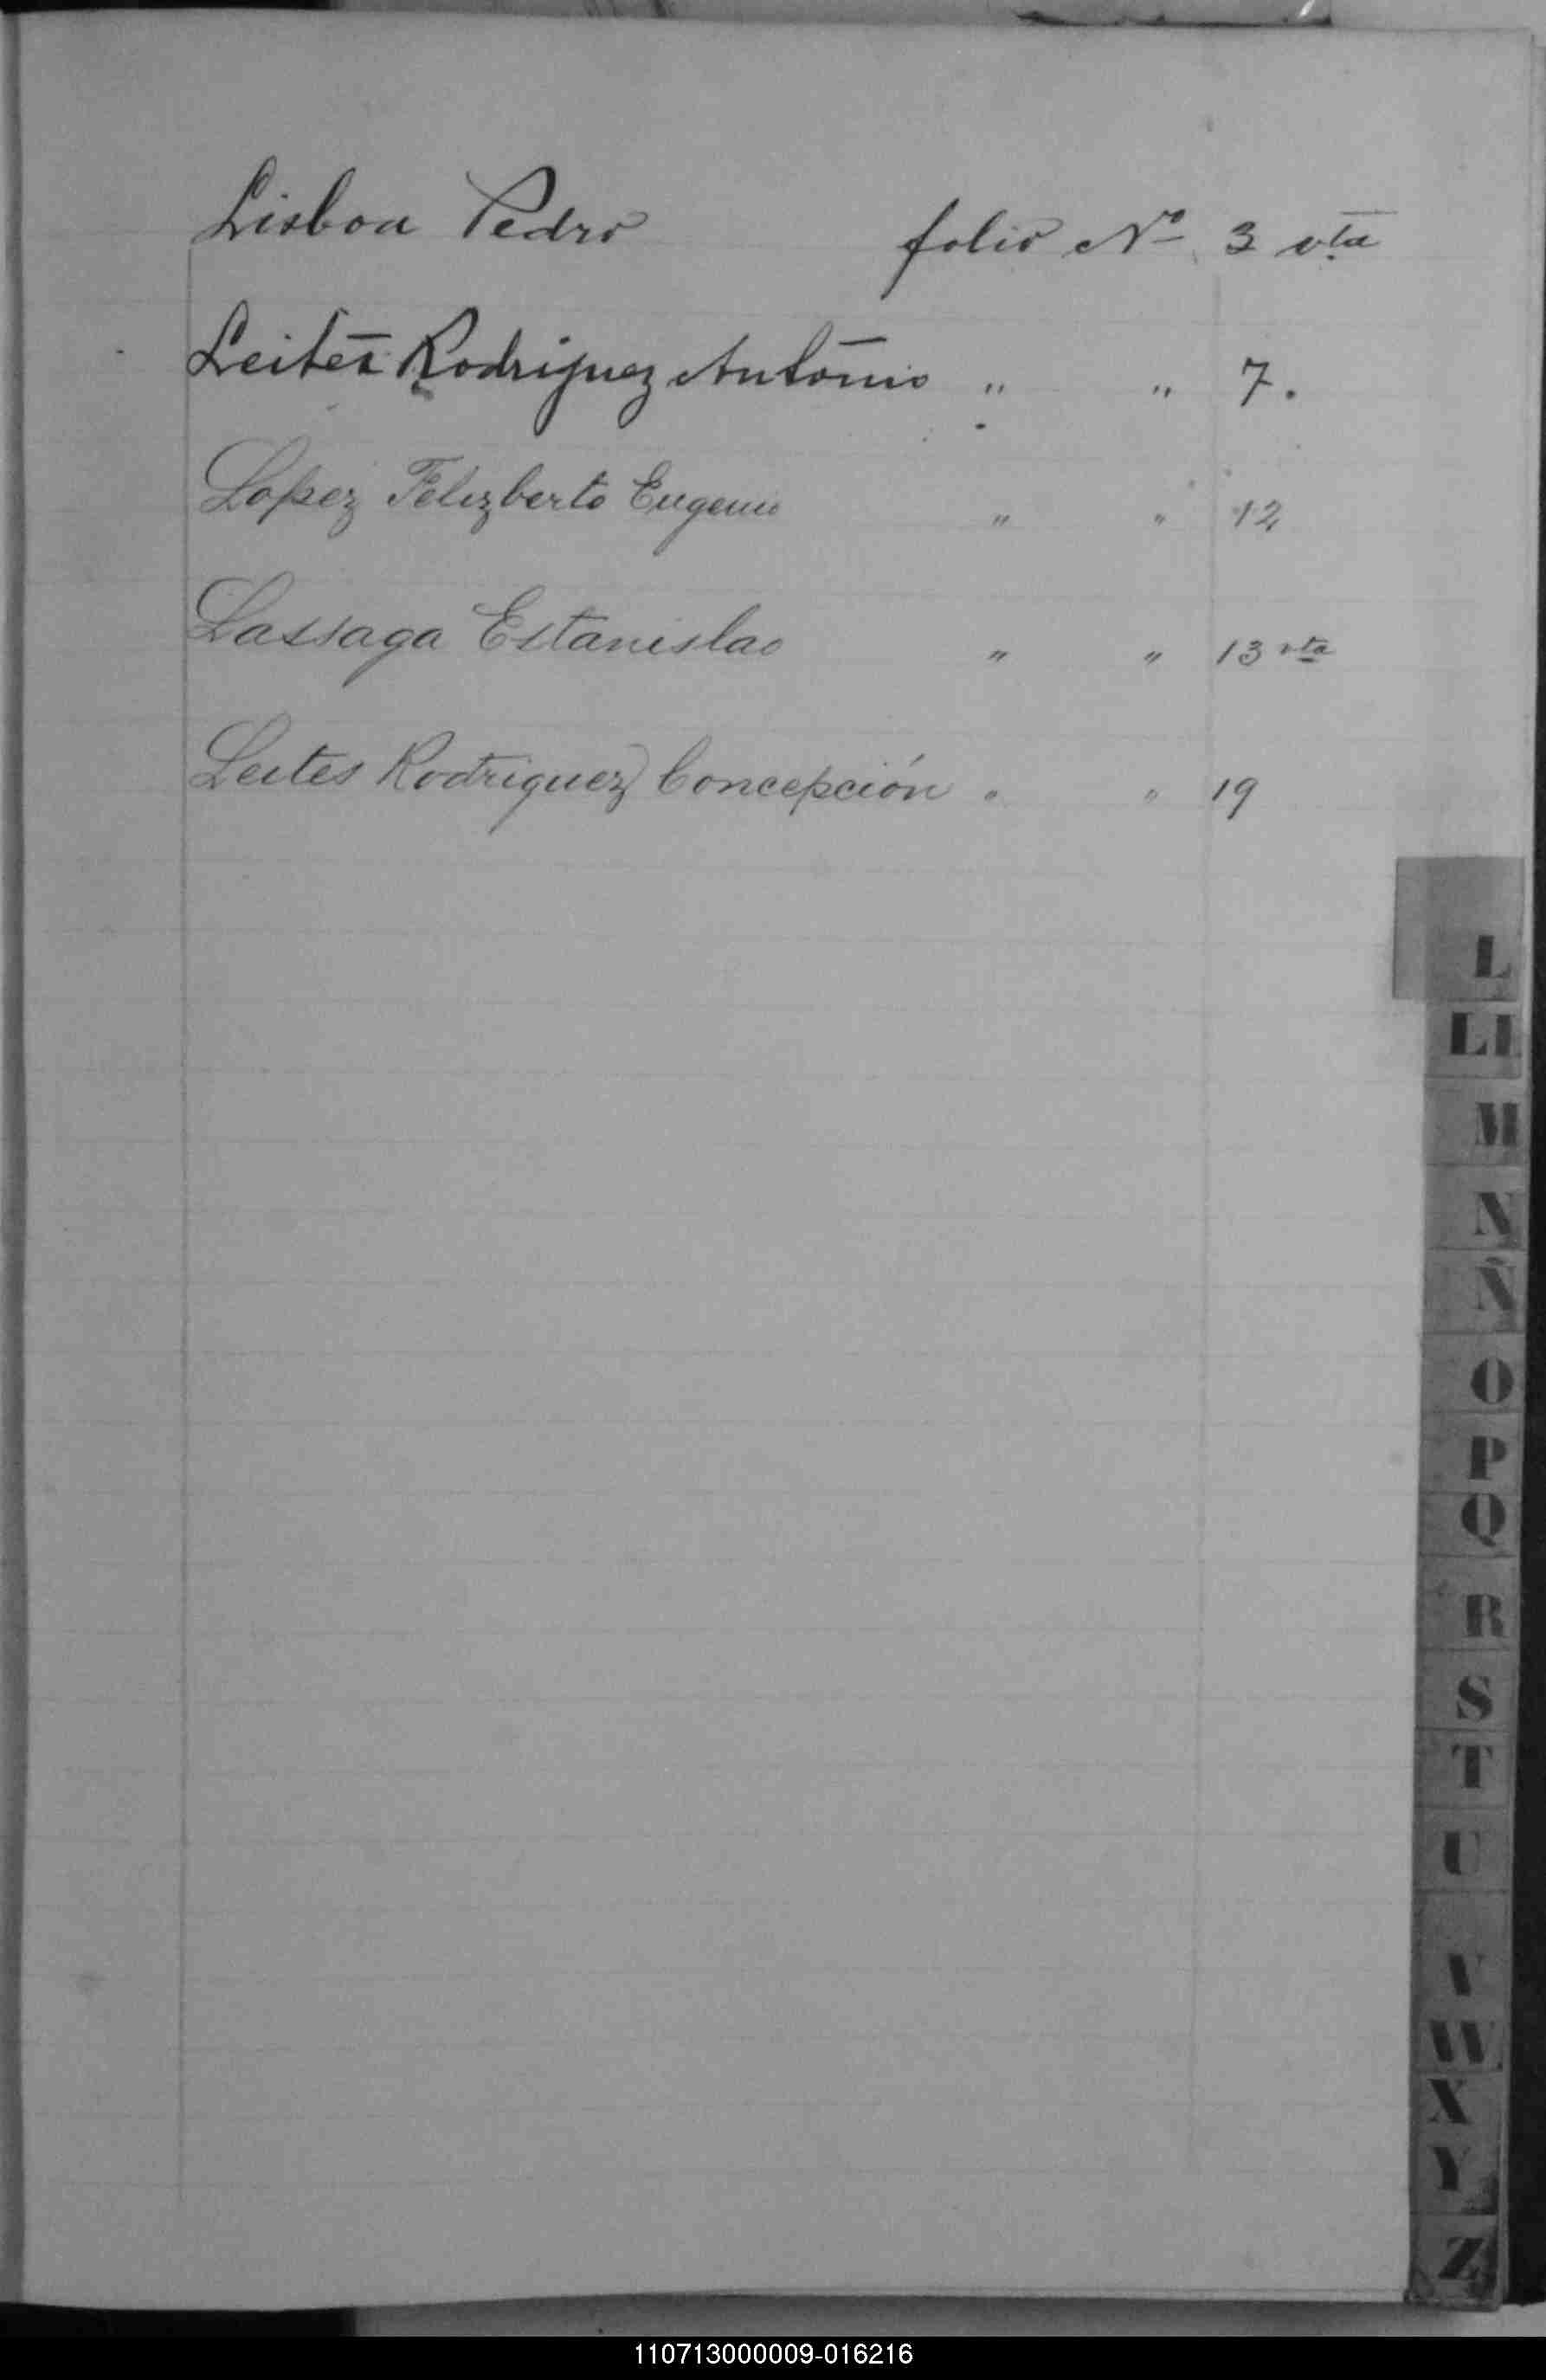 Lisboa Pedro folio Nº 3 vta
Leites Rodriguez Antonio " " 7.
Lopez Felizberto Eugenio " " 12
Lassaga Estanislao " " 13 vta
Leites Rodriguez Concepción " " 19
L
LL
M
N
Ñ
O
P
Q
R
S
T
U
V
W
X
Y
Z
110713000009-016216